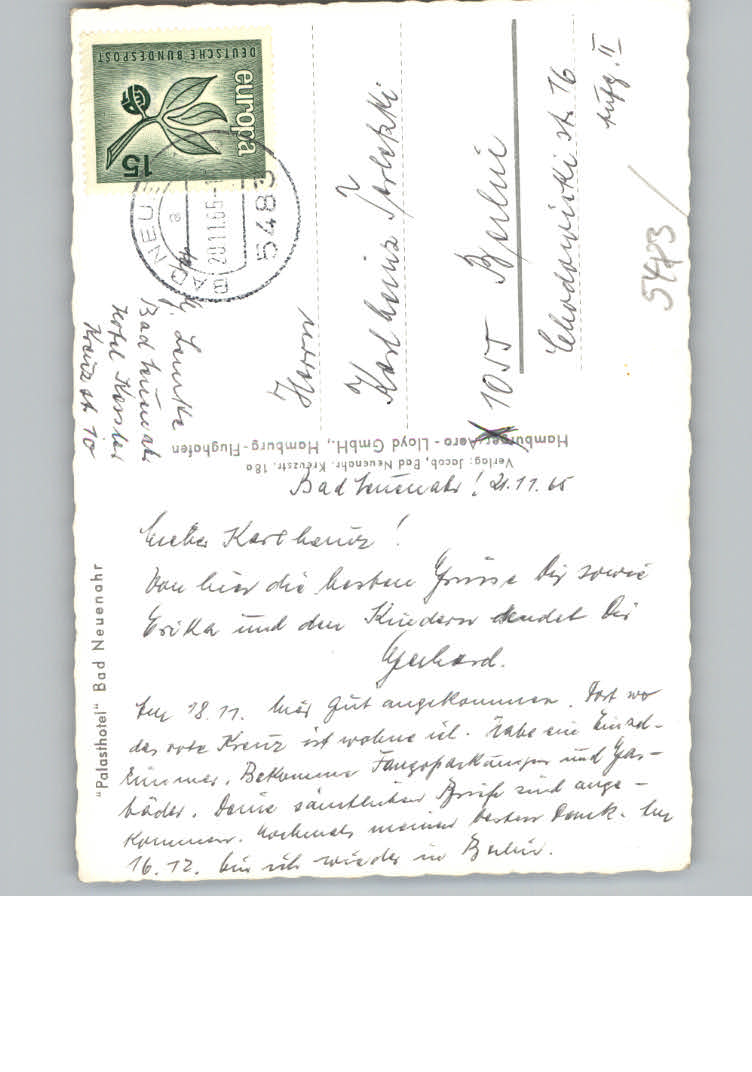 DEUTSCHE BUNDESPOST
europa
15
BAD NEUE
a
5483
G. Lemke
Bad Neuenahr
Hotel Kessler
Kreuzstr. 10
Herrn
Karlheinz
1055 Berlin
Chodowieckistr. 16
Aufg. II
5483
Hamburger Aero - Lloyd GmbH., Hamburg - Flughafen
Verlag: Jacob, Bad Neuenahr, Kreuzstr. 18a
"Palasthotel" Bad Neuenahr
Bad Neuenahr! 21.11.65
Lieber Karlheinz!
Von hier die besten Grüsse Dir sowie
Erika und den Kindern sendet Dir
Gerhard.
Am 18.11. hier gut angekommen. Dort wo
das rote Kreuz ist wohne ich. Habe ein Einzel-
zimmer. Bekomme Fangopackungen und Gas-
bäder. Deine sämtlichen Briefe sind ange-
kommen. Nochmals meinen besten Dank. Am
16.12. bin ich wieder in Berlin.